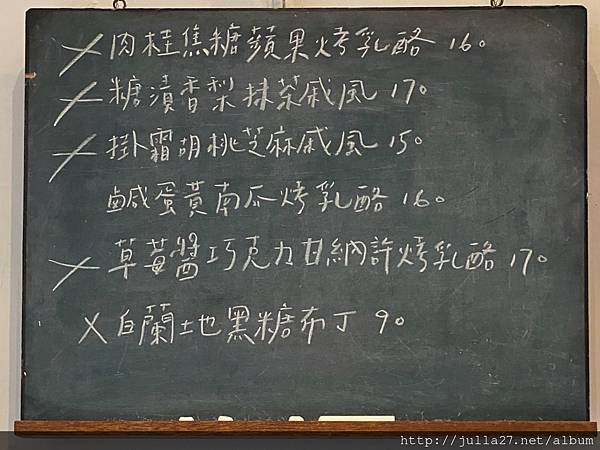 X 肉桂焦糖蘋果烤乳酪 160
X 糖漬香梨抹茶戚風 170
X 掛霜胡桃芝麻戚風 150
鹹蛋黃南瓜烤乳酪 160
X 草莓醬巧克力甘納許烤乳酪 170
X 白蘭地黑糖布丁 90
http://julla27.net/album